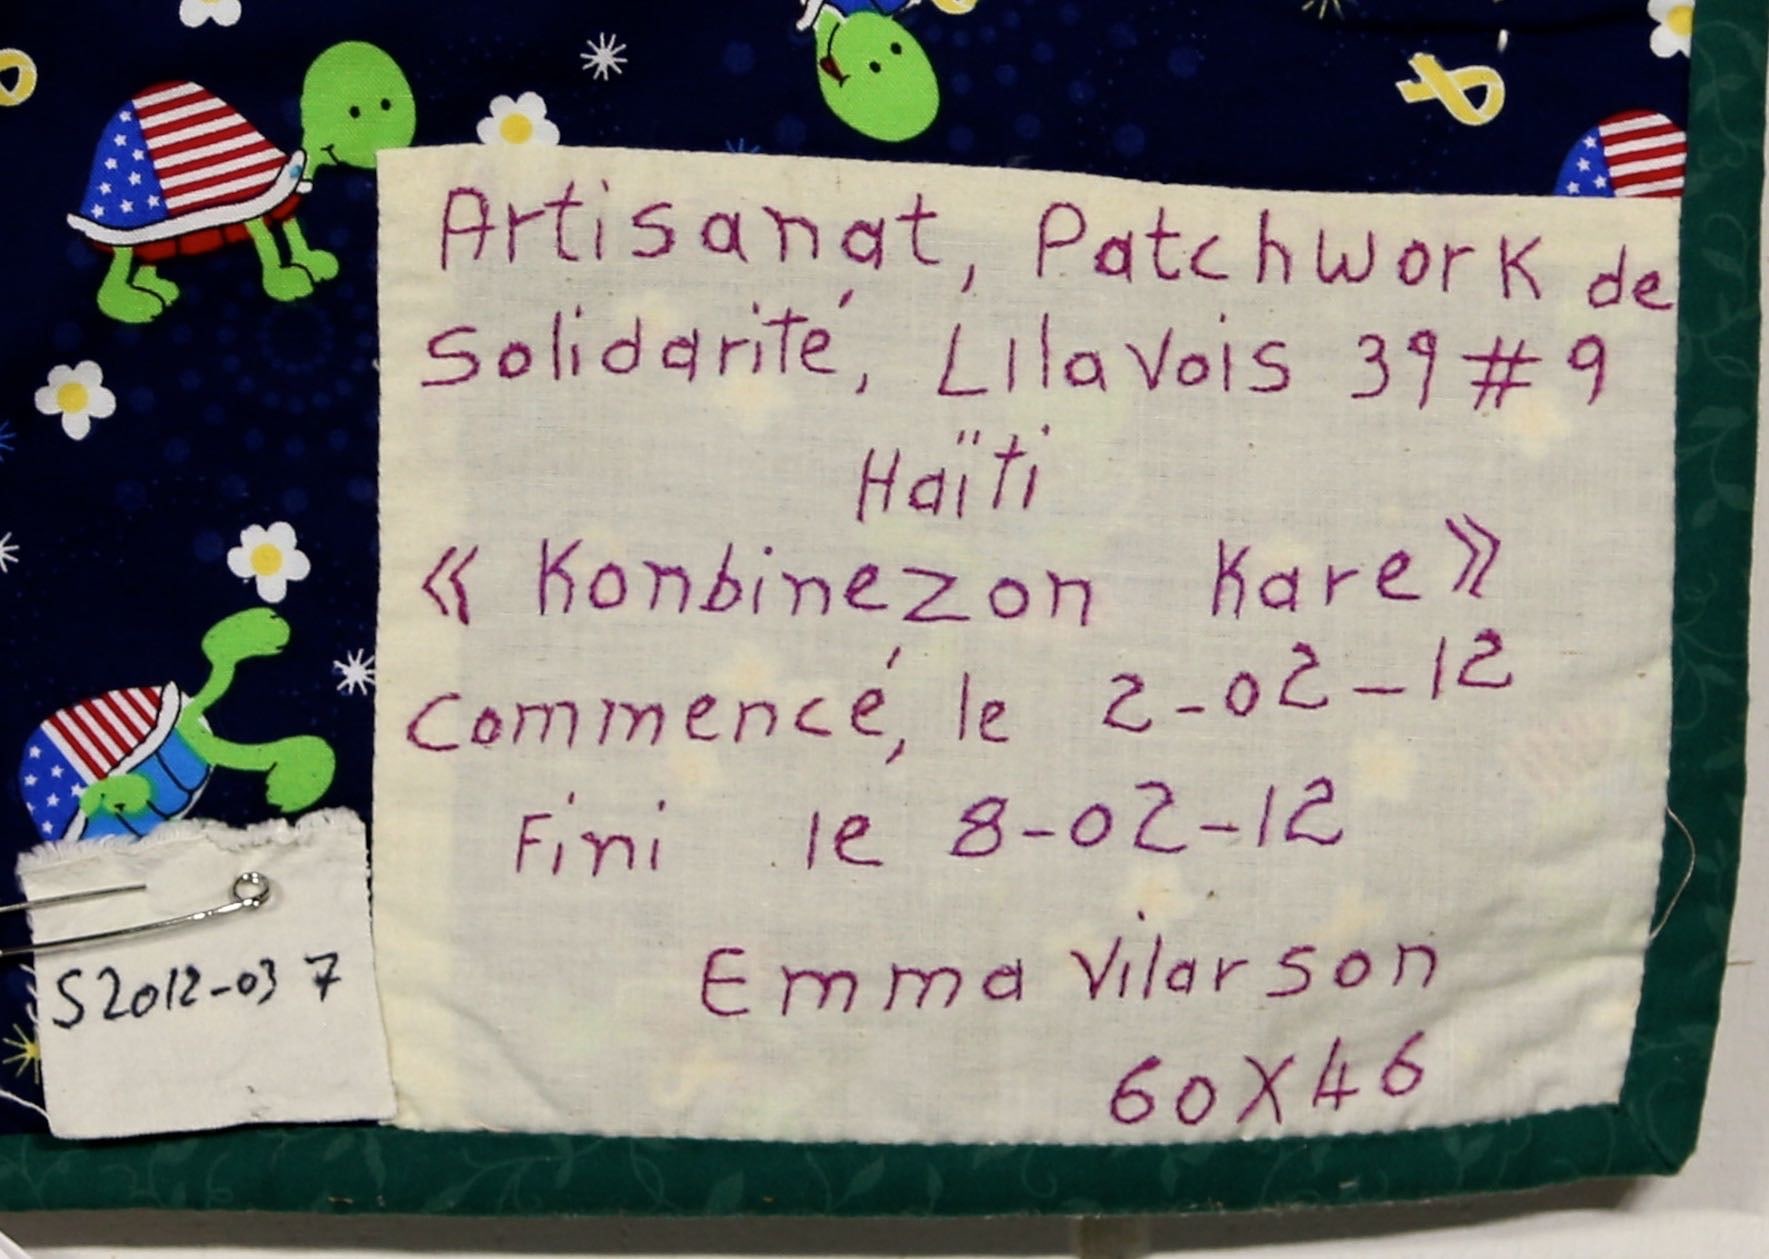 Artisanat, Patchwork de
Solidarité, Lilavois 39 # 9
Haïti
« Konbinezon Kare »
Commencé, le 2-02-12
Fini le 8-02-12
Emma Vilarson
60 X 46
S2012-037